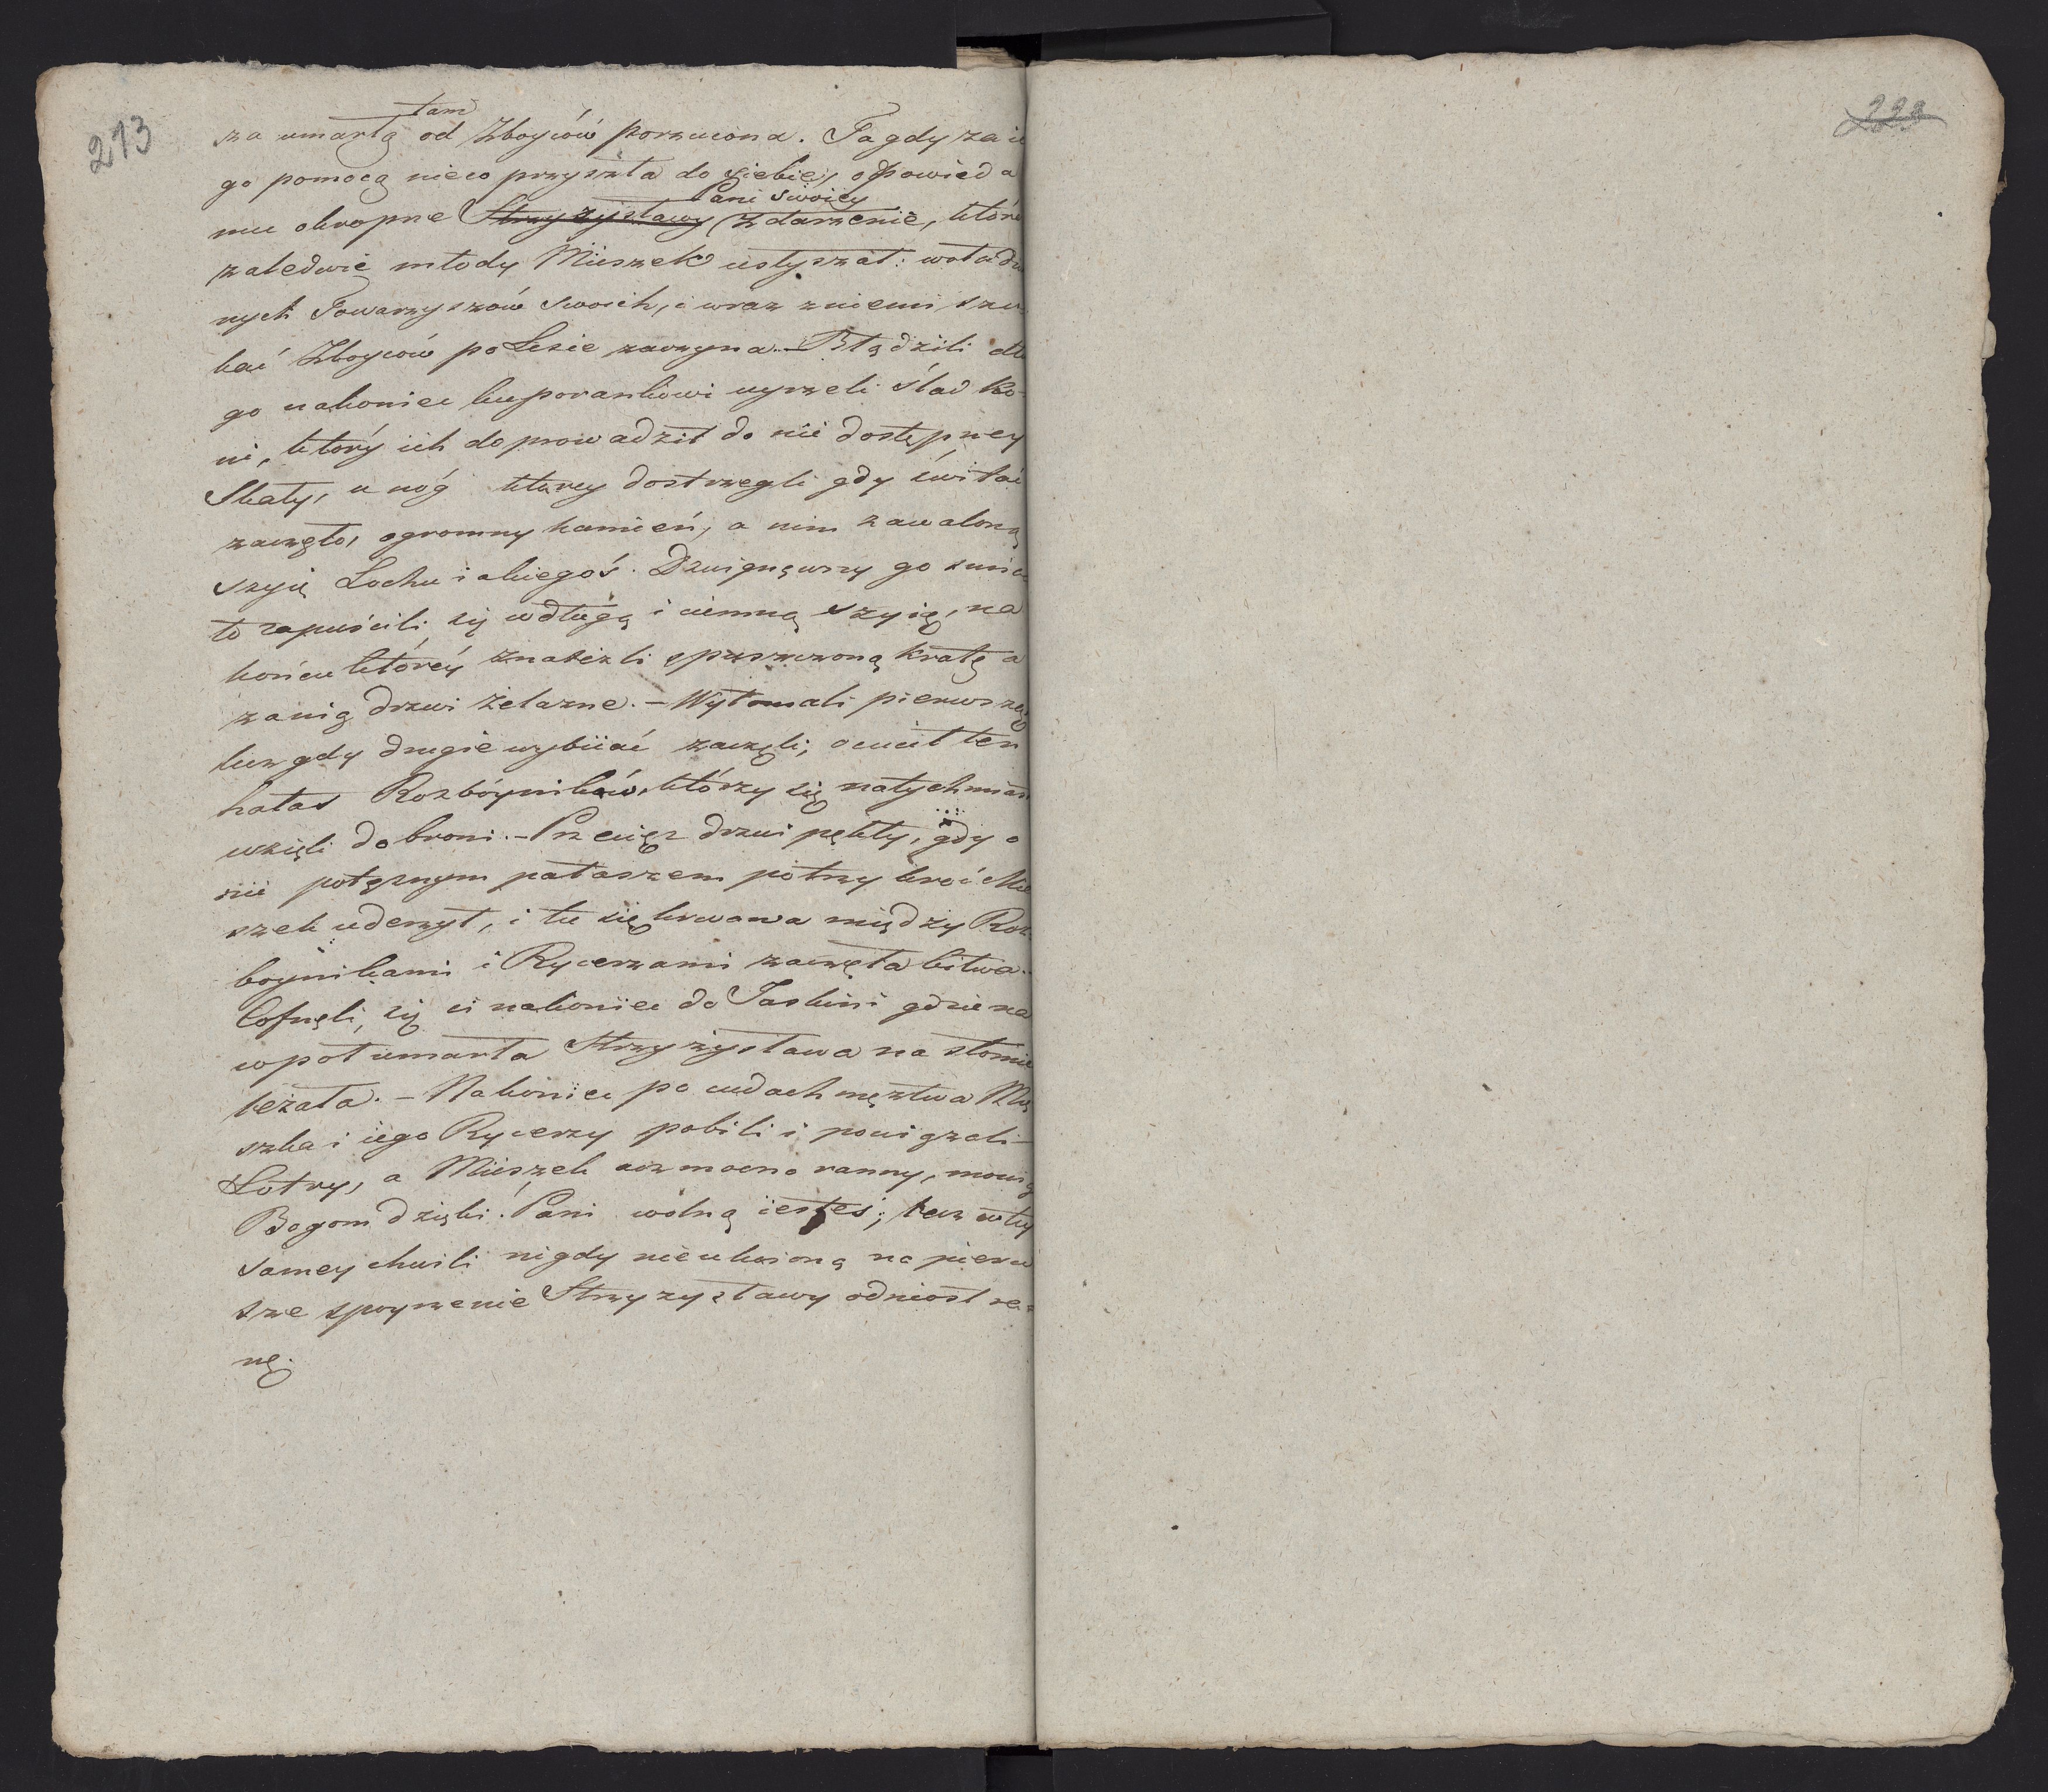 213
tam
za umarłą od Zboyców porzucona. Ta gdy za ie
go pomocą nieco przyszła do siebie, opowieda
Pani swoiey
mu okropne Strzyżysławy zdarzenie, które
zaledwie młody Mieszek usłyszał: woła du
nych Towarzyszów swoich, i wraz zniemi szu
kać Zboyców po Lesie zaczyna. – Błądzili dłu
go nakoniec kuporankowi uyrzeli ślad Ko-
ni, który ich doprowadził do nie dostępney
Skały, u nóg którey dostrzegli gdy świtać
zaczęło, ogromny kamień, a nim zawaloną
szyię Lochu iakiegoś. Dzwignąwszy go śmia
to zapuścili się wdługą i ciemną szyię, na
końcu któréy znaleźli spuszczoną kratę a
zanią drzwi żelazne. – Wyłomali pierwszą
lecz gdy drugie wybiiać zaczęli, ocucił ten
hałas Rozbóyników, którzy się natychmias
wzięli do broni. – Przeciąz drzwi pękły, gdy o
nie potężnym pałaszem potrzykroć Mie
szek uderzył, i tu się krwawa między Roz
boynikami i Rycerzami zaczęła bitwa.
Cofnęli się ci nakoniec do Jaskini gdzie na
wpół umarła Strzyżysława na słomie
leżała. – Nakoniec po cudach męztwa Mie
szka i iego Rycerzy pobili i powiązali
Łotry, a Mieszek acz mocno ranny, mowią
Bogom dzięki! Pani wolną iesteś; lecz wtey
samey chwili nigdy nieukoioną na pierw
sze spoyrzenie Strzyżysławy odniosł ra-
nę.
223